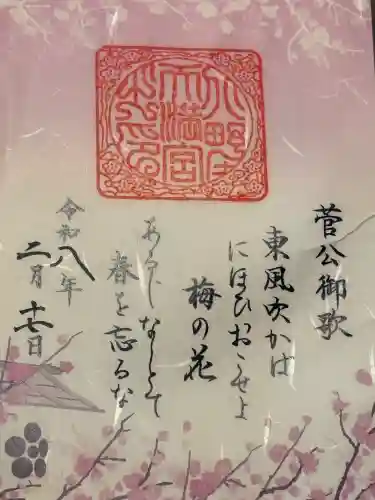 菅公御歌
東風吹かは
にほひおこせよ
梅の花
あるしなしとて
春を忘るなよ
令和八年
二月十七日